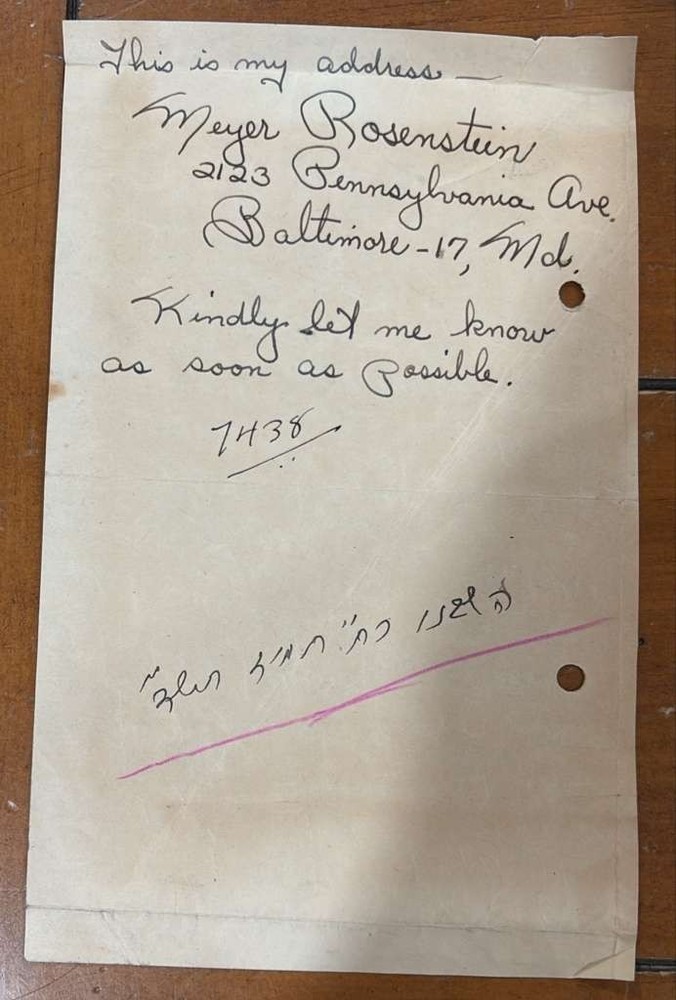 This is my address —
Meyer Rosenstein
2123 Pennsylvania Ave.
Baltimore-17, Md.
Kindly let me know
as soon as possible.
7438
השבנו תמוז